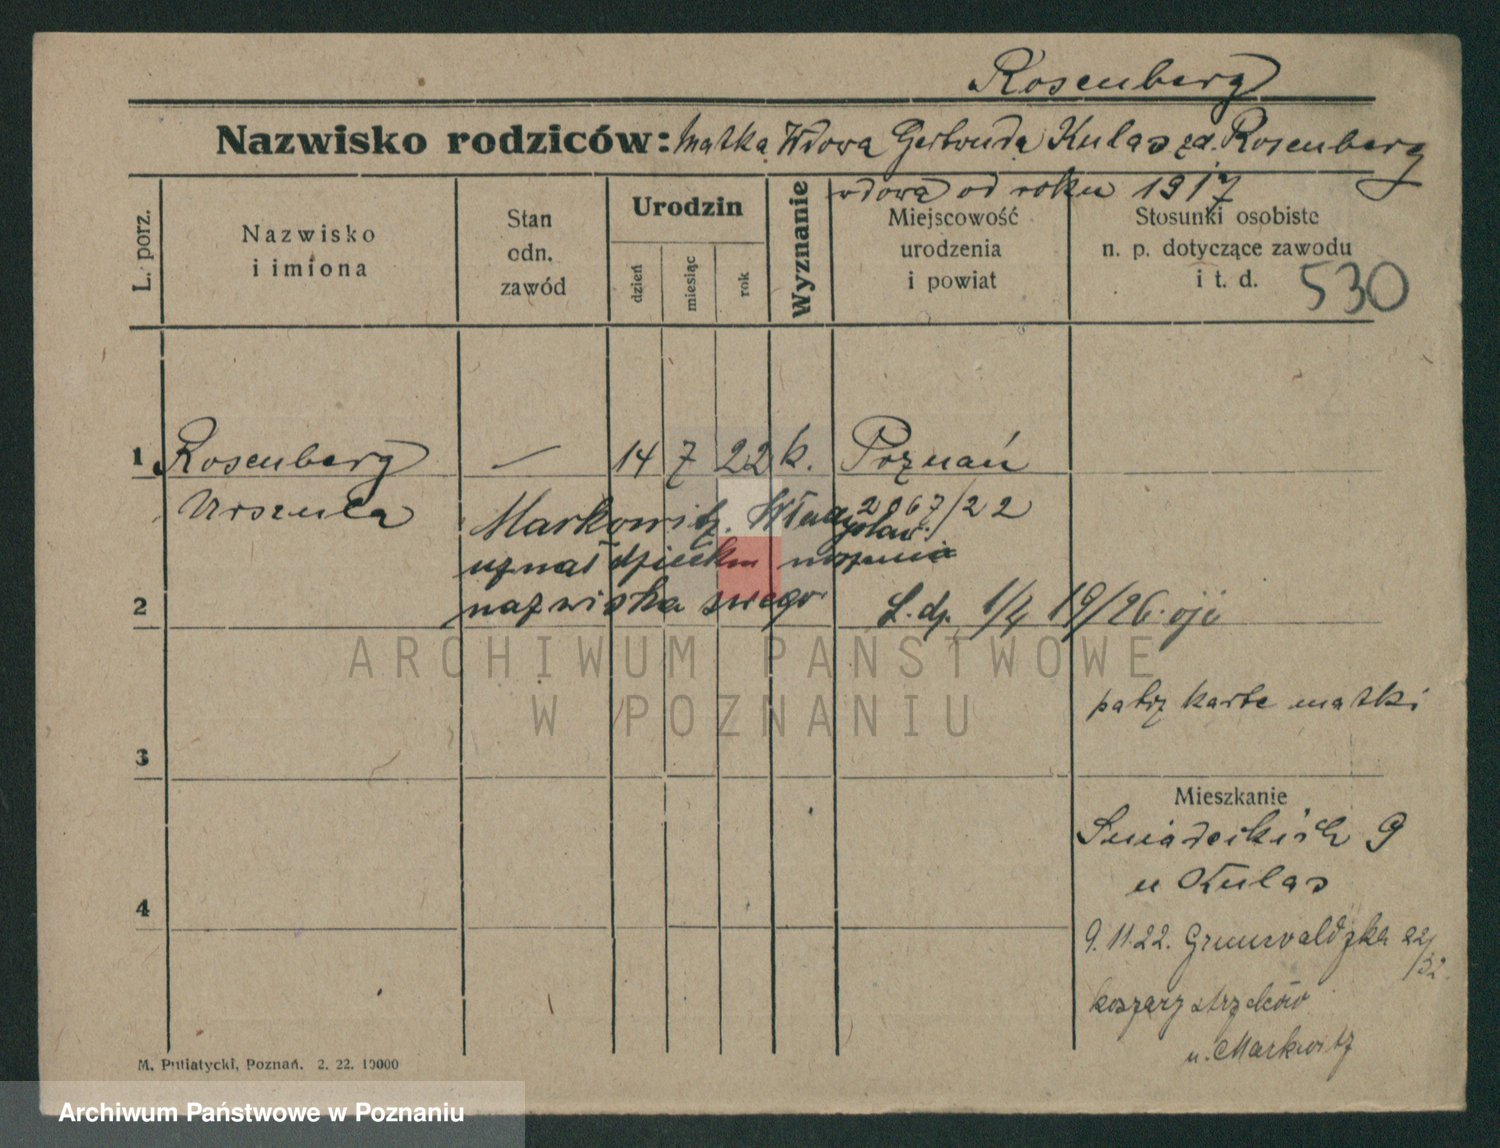 Rosenberg
Nazwisko rodziców: Matka Wdowa Gertruda Kulas zd. Rosenberg
wdowa od roku 1917
L. porz.
Nazwisko
i imiona
Stan
odn.
zawód
Urodzin
dzień
miesiąc
rok
Wyznanie
Miejscowość
urodzenia
i powiat
Stosunki osobiste
n. p. dotyczące zawodu
i t. d.
530
1 Rosenberg — 14 7 22 k. Poznań
Urszula
2067/22
Markowitz Władysław
uznał dziecku noszenia
nazwiska swego
2
L. dz. 1/4 19/26
patrz kartę matki
3
Mieszkanie
Śniadeckich 9
u Kulas
4
9.11.22. Grunwaldzka 22/32
koszary strzelców
u. Markwitz
M. Putiatycki, Poznań. 2. 22. 10000
ARCHIWUM PAŃSTWOWE
W POZNANIU
Archiwum Państwowe w Poznaniu